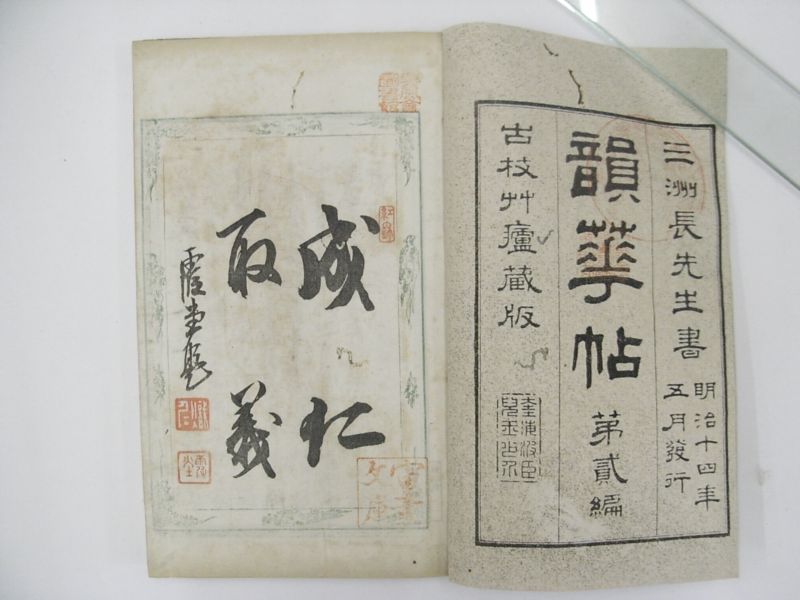 三洲長先生書
明治十四年
五月發行
韻華帖
第貳編
古枝艸廬蔵版
成仁
取義